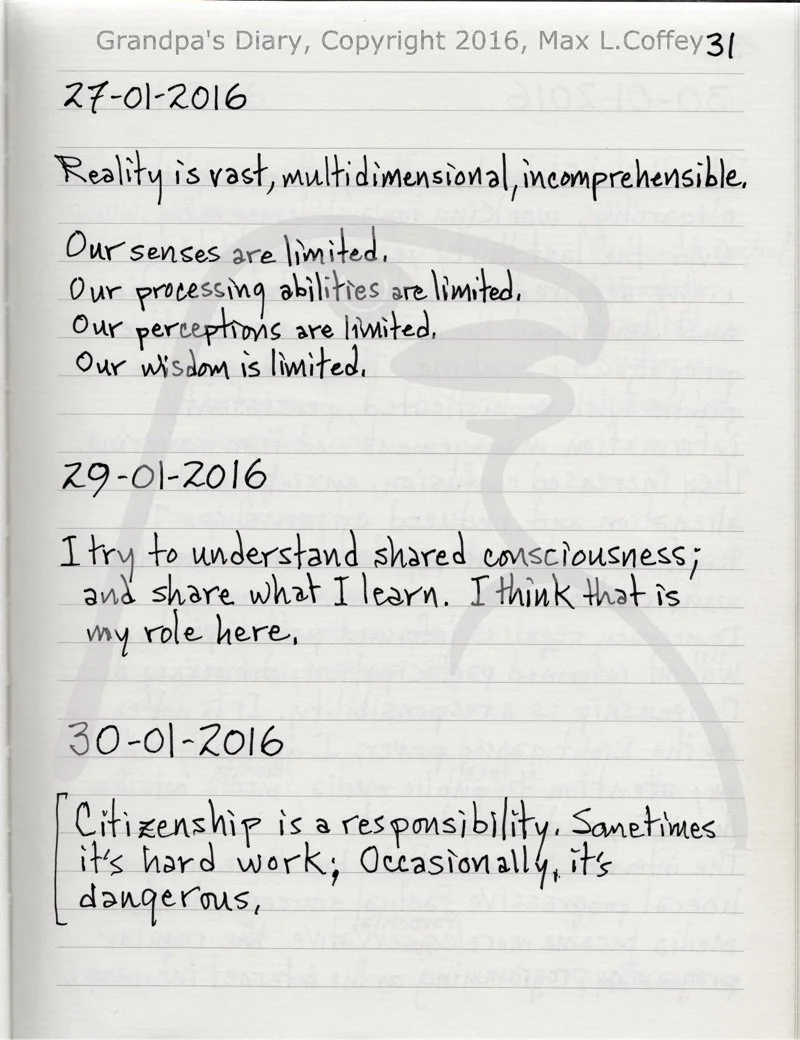 Grandpa's Diary, Copyright 2016, Max L.Coffey 31
27-01-2016
Reality is vast, multidimensional, incomprehensible.
Our senses are limited.
Our processing abilities are limited.
Our perceptions are limited.
Our wisdom is limited.
29-01-2016
I try to understand shared consciousness;
and share what I learn. I think that is
my role here.
30-01-2016
Citizenship is a responsibility. Sometimes
it's hard work; Occasionally, it's
dangerous.